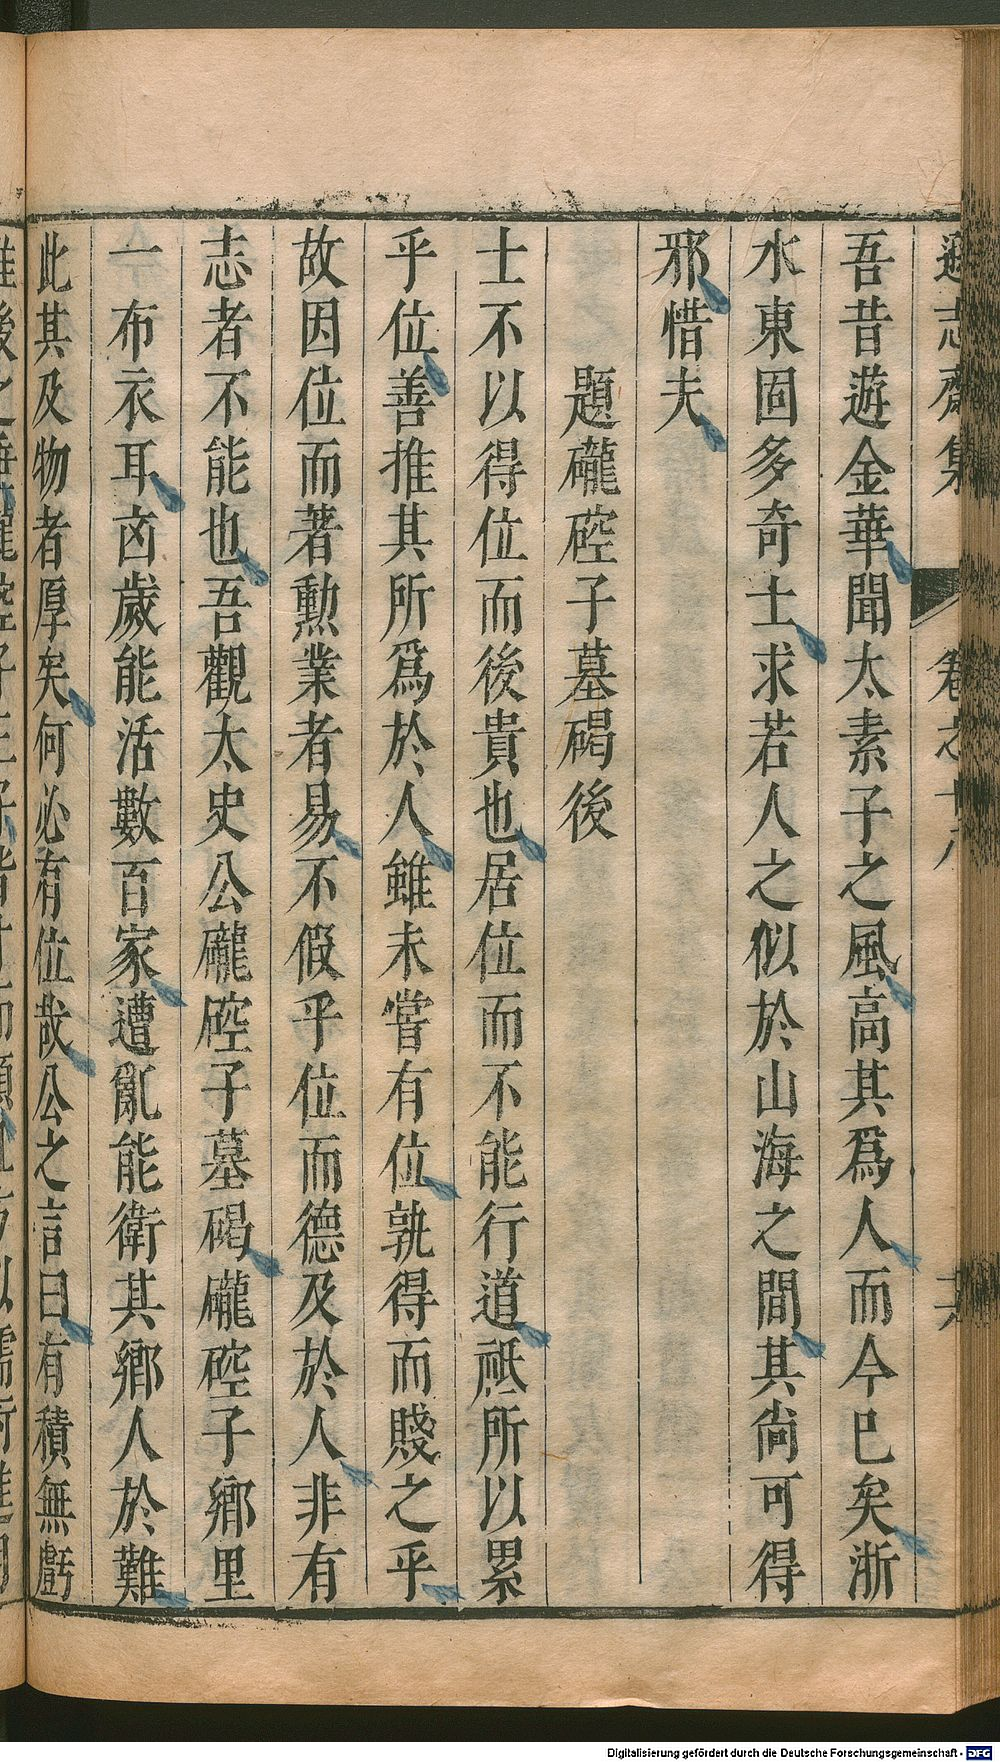 遜志齋集 卷之十八
吾昔遊金華聞太素子之風高其爲人而今已矣浙
水東固多奇士求若人之似於山海之間其尚可得
邪惜夫
題礲硿子墓碣後
士不以得位而後貴也居位而不能行道祗所以累
乎位善推其所爲於人雖未嘗有位孰得而賤之乎
故因位而著勲業者易不假乎位而德及於人非有
志者不能也吾觀太史公礲硿子墓碣礲硿子鄉里
一布衣耳凶歲能活數百家遭亂能衛其鄉人於難
此其及物者厚矣何必有位哉公之言曰有積無虧
Digitalisierung gefördert durch die Deutsche Forschungsgemeinschaft - DFG